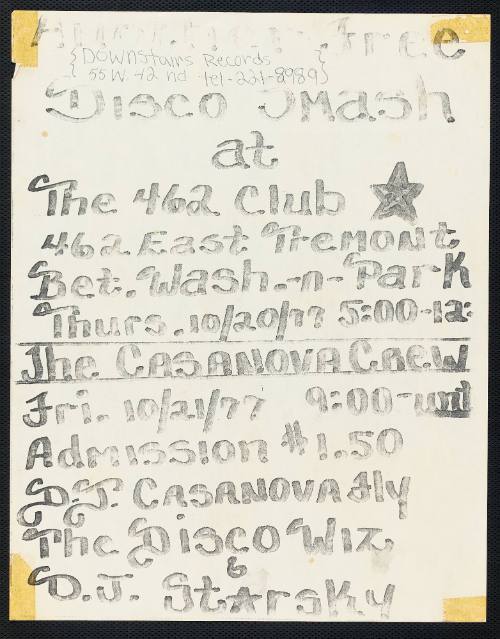 Free
{Downstairs Records}
{55 W. 42 nd tel-221-8989}
Disco Smash
at
The 462 Club
462 East Tremont
Bet. Wash.-n-Park
Thurs. 10/20/77 5:00-12:
The CASANOVA Crew
Fri. 10/21/77 9:00-until
Admission $1.50
D.J. CASANOVA Fly
The Disco Wiz
&
D.J. Starsky